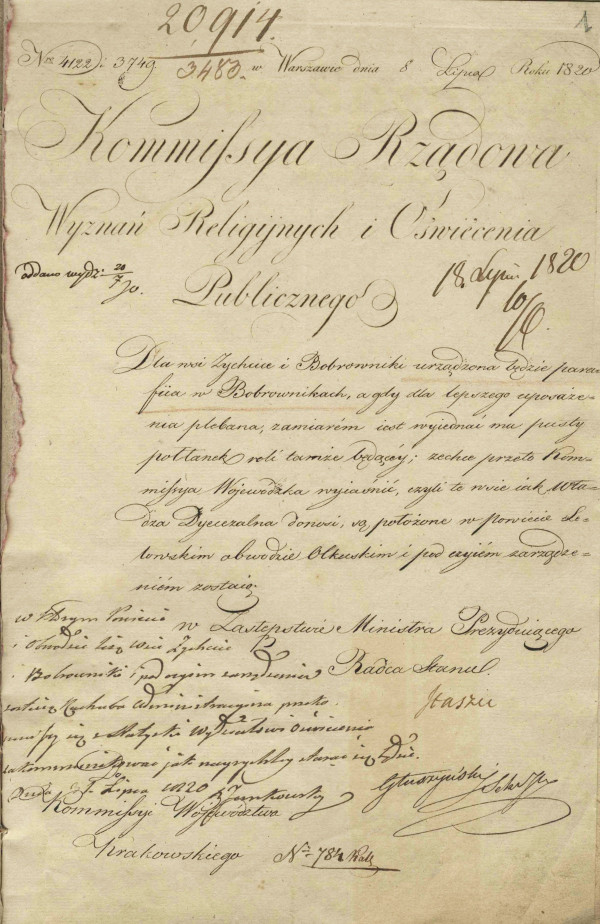 20,914.
1
Nro 4122 i 3749
3483.
w Warszawie dnia 8 Lipca Roku 1820
Kommissya Rządowa
Wyznań Religijnych i Oświécenia
oddano wydz: 20/7 20.
Publicznego
18 Lipca 1820
Dla wsi Zychcice i Bobrowniki urządzona będzie para-
fiia w Bobrownikach, a gdy dla lepszego uposaże-
nia plebana, zamiarém iest wyiednać mu pusty
połłanek roli tamże będący; zechce przeto Kom-
missya Wojewódzka wyiaśnić, czyli te wsie iak Wła-
dza Dyecezalna donosi, są położone w Powiecie Le-
lowskim obwodzie Olkuskim i pod czyiém zarządze-
niém zostaią.
w Zastępstwie Ministra Prezyduiącego
Radca Stanu
Staszic
w Którym Powiecie
i Obwodzie leżą wsie Zychcice
i Bobrowniki i pod czyim zarządzeniem
zostaią
jak nayrychley starać się będzie.
Lipca 1820
Głuszyński
Kommissyi Województwa
Krakowskiego
No 784